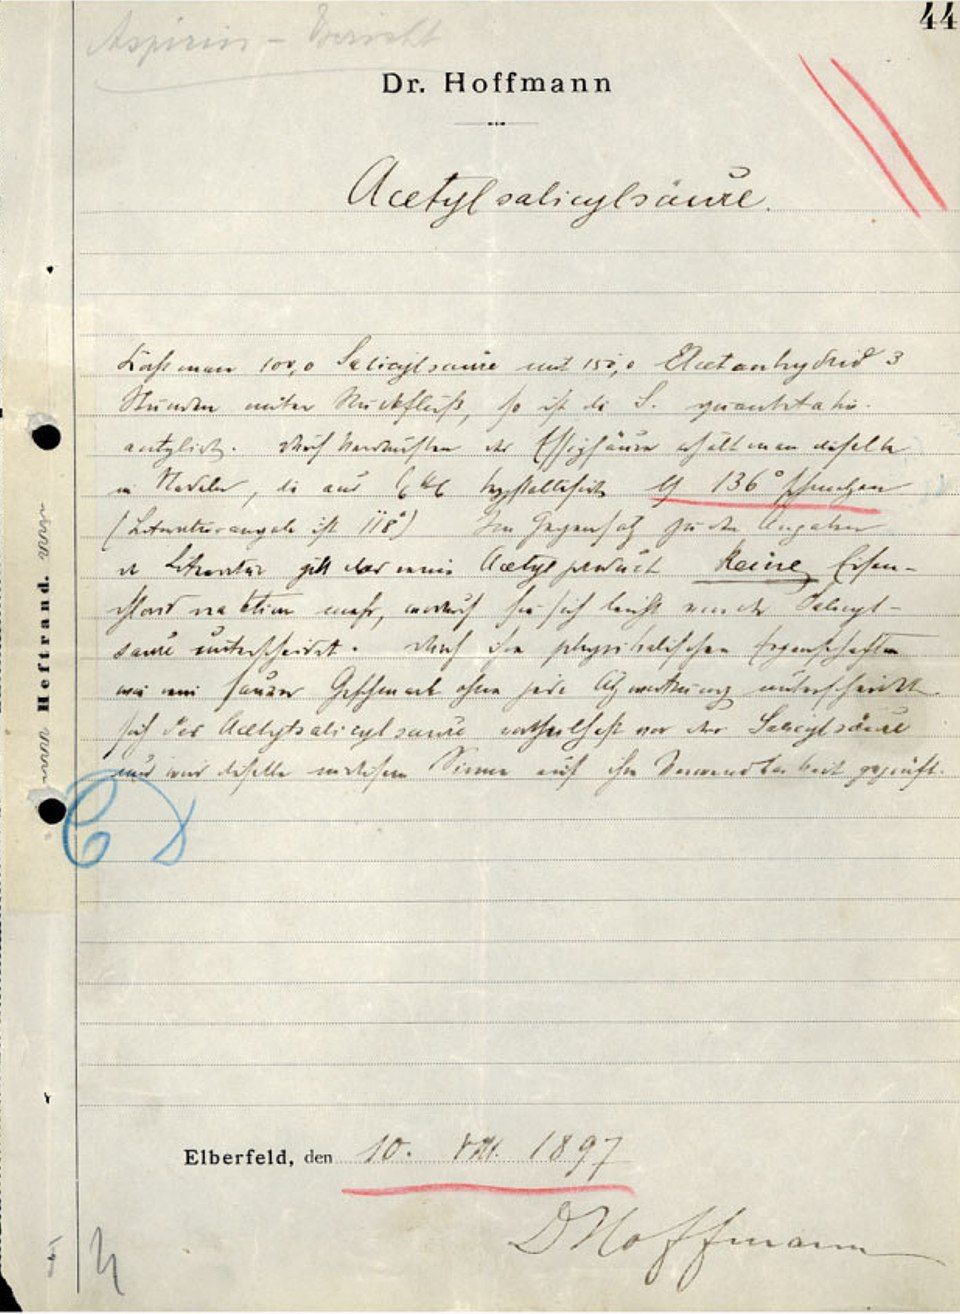 44
Aspirin - Bericht
Dr. Hoffmann
Acetylsalicylsäure.
Kocht man 100,0 Salicylsäure mit 150,0 Acetanhydrid 3
Stunden unter Rückfluß, so ist die S. quantitativ
acetylirt. Durch Abdestilliren der Essigsäure erhält man dieselbe
in Nadeln, die aus krystallisirt 136° schmelzen
(Literaturangabe ist 118°) Im Gegensatz zu den Angaben
der Literatur giebt das reine Acetylproduct keine Eisen-
chloridreaktion mehr, wodurch sie sich leicht von der Salicyl-
säure unterscheidet. Durch ihre physikalischen Eigenschaften
wie einen sauren Geschmack ohne jede Ätzwirkung unterscheidet
sich die Acetylsalicylsäure vortheilhaft von der Salicylsäure
und wird dieselbe in diesem Sinne auf ihre Verwendbarkeit geprüft.
Heftrand.
Elberfeld, den 10. VIII. 1897
Hoffmann